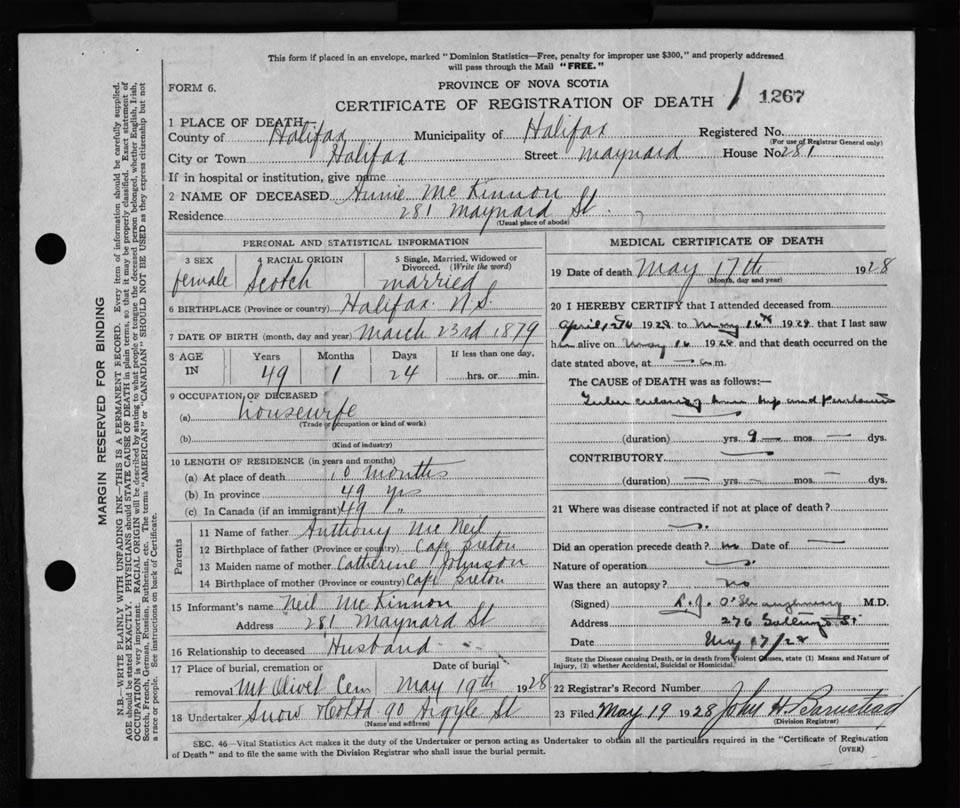 This form if placed in an envelope, marked "Dominion Statistics—Free, penalty for improper use $300," and properly addressed
will pass through the Mail "FREE."
FORM 6.
PROVINCE OF NOVA SCOTIA
CERTIFICATE OF REGISTRATION OF DEATH 1267
1 PLACE OF DEATH—
County of Halifax Municipality of Halifax Registered No.
(For use of Registrar General only)
City or Town Halifax Street Maynard House No 281
If in hospital or institution, give name
2 NAME OF DECEASED Annie Mc Kinnon
Residence 281 Maynard St.
(Usual place of abode)
PERSONAL AND STATISTICAL INFORMATION
3 SEX 4 RACIAL ORIGIN 5 Single, Married, Widowed or Divorced. (Write the word)
female Scotch married
6 BIRTHPLACE (Province or country) Halifax N.S.
7 DATE OF BIRTH (month, day and year) March 23rd 1879
8 AGE IN Years Months Days If less than one day,
49 1 24 hrs. or min.
9 OCCUPATION OF DECEASED
(a) housewife
(Trade or occupation or kind of work)
(b)
(Kind of industry)
10 LENGTH OF RESIDENCE (in years and months)
(a) At place of death 10 months
(b) In province 49 yrs
(c) In Canada (if an immigrant) 49 "
Parents
11 Name of father Anthony Mc Neil
12 Birthplace of father (Province or country) Cape Breton
13 Maiden name of mother Catherine Johnson
14 Birthplace of mother (Province or country) Cape Breton
15 Informant's name Neil Mc Kinnon
Address 281 Maynard St
16 Relationship to deceased Husband
17 Place of burial, cremation or Date of burial
removal Mt Olivet Cem May 19th 1928
18 Undertaker Snow & Co Ltd 90 Argyle St
(Name and address)
MEDICAL CERTIFICATE OF DEATH
19 Date of death May 17th 1928
(Month, day and year)
20 I HEREBY CERTIFY that I attended deceased from
April 1928 to May 16th 1928 that I last saw
h alive on May 16 1928 and that death occurred on the
date stated above, at — a m.
The CAUSE of DEATH was as follows:—
Tuberculosis hip and
(duration) yrs. 9 mos. — dys.
CONTRIBUTORY
(duration) — yrs. — mos. — dys.
21 Where was disease contracted if not at place of death?
Did an operation precede death? no Date of —
Nature of operation
Was there an autopsy? no
(Signed) M.D.
Address 276 St
Date May 17/28
State the Disease causing Death, or in death from Violent Causes, state (1) Means and Nature of
Injury, (2) whether Accidental, Suicidal or Homicidal.
22 Registrar's Record Number
23 Filed May 19 1928 John H Barnstead
(Division Registrar)
SEC. 46—Vital Statistics Act makes it the duty of the Undertaker or person acting as Undertaker to obtain all the particulars required in the "Certificate of Registration
of Death" and to file the same with the Division Registrar who shall issue the burial permit. (OVER)
MARGIN RESERVED FOR BINDING
N.B.—WRITE PLAINLY WITH UNFADING INK—THIS IS A PERMANENT RECORD. Every item of information should be carefully supplied.
AGE should be stated EXACTLY. PHYSICIANS should STATE CAUSE OF DEATH in plain terms, so that it may be properly classified. Exact statement of
OCCUPATION is very important. RACIAL ORIGIN will be described by stating to what people or tongue the deceased person belonged, whether English, Irish,
Scotch, French, German, Russian, Ruthenian, etc. The terms "AMERICAN" or "CANADIAN" SHOULD NOT BE USED as they express citizenship but not
a race or people. See instructions on back of Certificate.